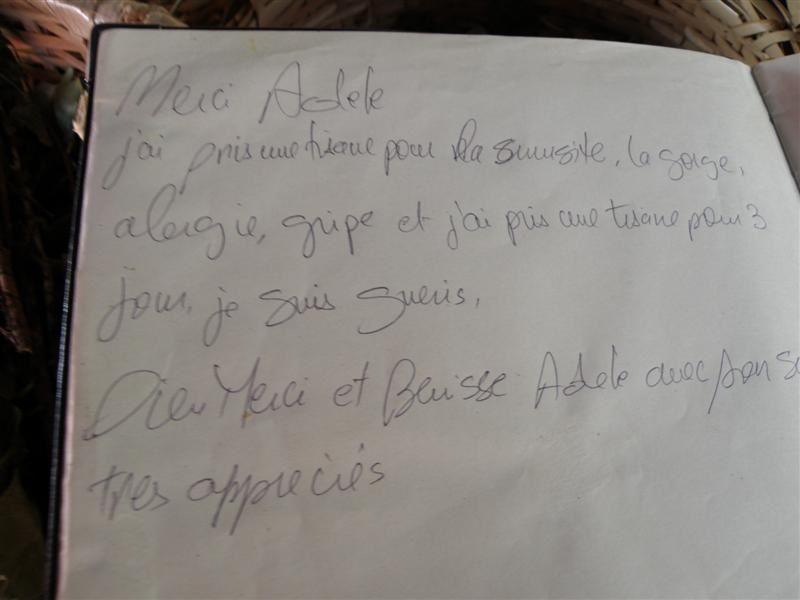 Merci Adele
j'ai pris une tisane pour la sinusite, la gorge,
alergie, gripe et j'ai pris une tisane pour 3
jour, je suis gueris,
Dieu Merci et Benisse Adele avec son
tres appreciés